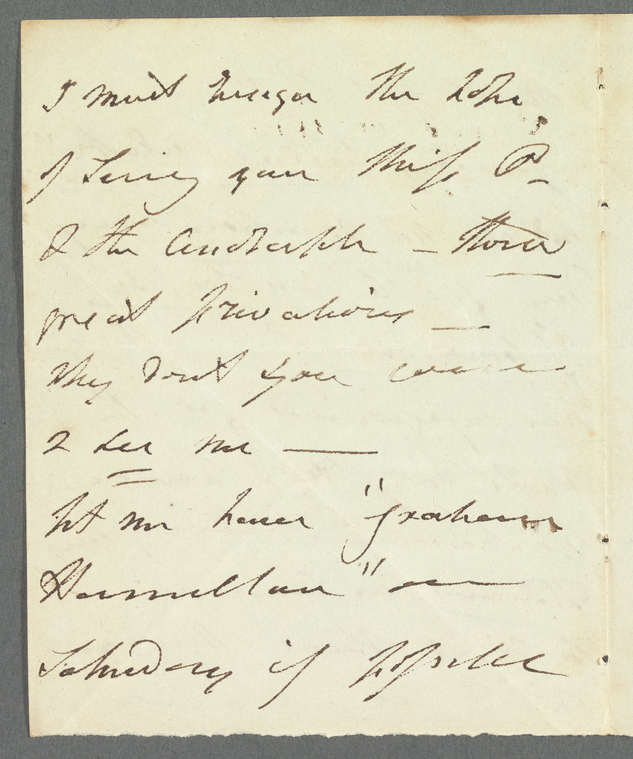 I must the hope
of Seeing your Miss P_
& the —
great privations —
Why dont you come
2 see me —
let me have "Graham
Hamilton" on
Saturday if possible